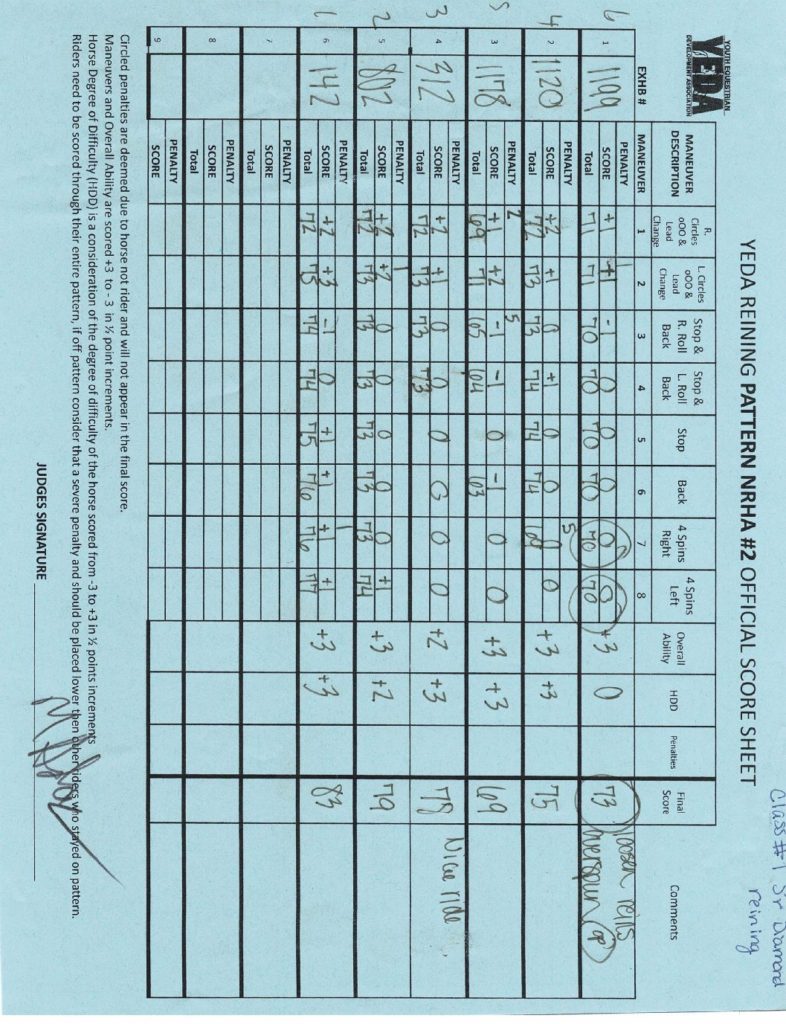 Class #1 Sr Diamond
reining
YOUTH EQUESTRIAN
YEDA
DEVELOPMENT ASSOCIATION
YEDA REINING PATTERN NRHA #2 OFFICIAL SCORE SHEET
MANEUVER DESCRIPTION R. Circles oOO & Lead Change L. Circles oOO & Lead Change Stop & R. Roll Back Stop & L. Roll Back Stop Back 4 Spins Right 4 Spins Left Overall Ability HDD Penalties Final Score Comments
EXHB # MANEUVER 1 2 3 4 5 6 7 8
6 1 1199 PENALTY
SCORE +1 +1 -1 0 0 0 0 0 +3 0 73 loosen reins
Total 71 71 70 70 70 70 70 70 overspun OP
4 2 1120 PENALTY 5
SCORE +2 +1 0 +1 0 0 0 +3 +3 75
Total 72 73 73 74 74 74 69
5 3 1178 PENALTY 2 5
SCORE +1 +2 -1 -1 0 -1 0 0 +3 +3 69
Total 69 71 65 64 63
3 4 312 PENALTY
SCORE +2 +1 0 0 0 0 0 0 +2 +3 78 Nice ride
Total 72 73 73 73
2 5 802 PENALTY 1
SCORE +2 +2 0 0 0 0 0 +1 +3 +2 79
Total 72 73 73 73 73 73 73 74
1 6 142 PENALTY 1
SCORE +2 +3 -1 0 +1 +1 +1 +1 +3 +3 83
Total 72 75 74 74 75 76 76 77
7 PENALTY
SCORE
Total
8 PENALTY
SCORE
Total
9 PENALTY
SCORE
Circled penalties are deemed due to horse not rider and will not appear in the final score.
Maneuvers and Overall Ability are scored +3 to - 3 in ½ point increments.
Horse Degree of Difficulty (HDD) is a consideration of the degree of difficulty of the horse scored from -3 to +3 in ½ points increments
Riders need to be scored through their entire pattern, if off pattern consider that a severe penalty and should be placed lower then other riders who stayed on pattern.
JUDGES SIGNATURE